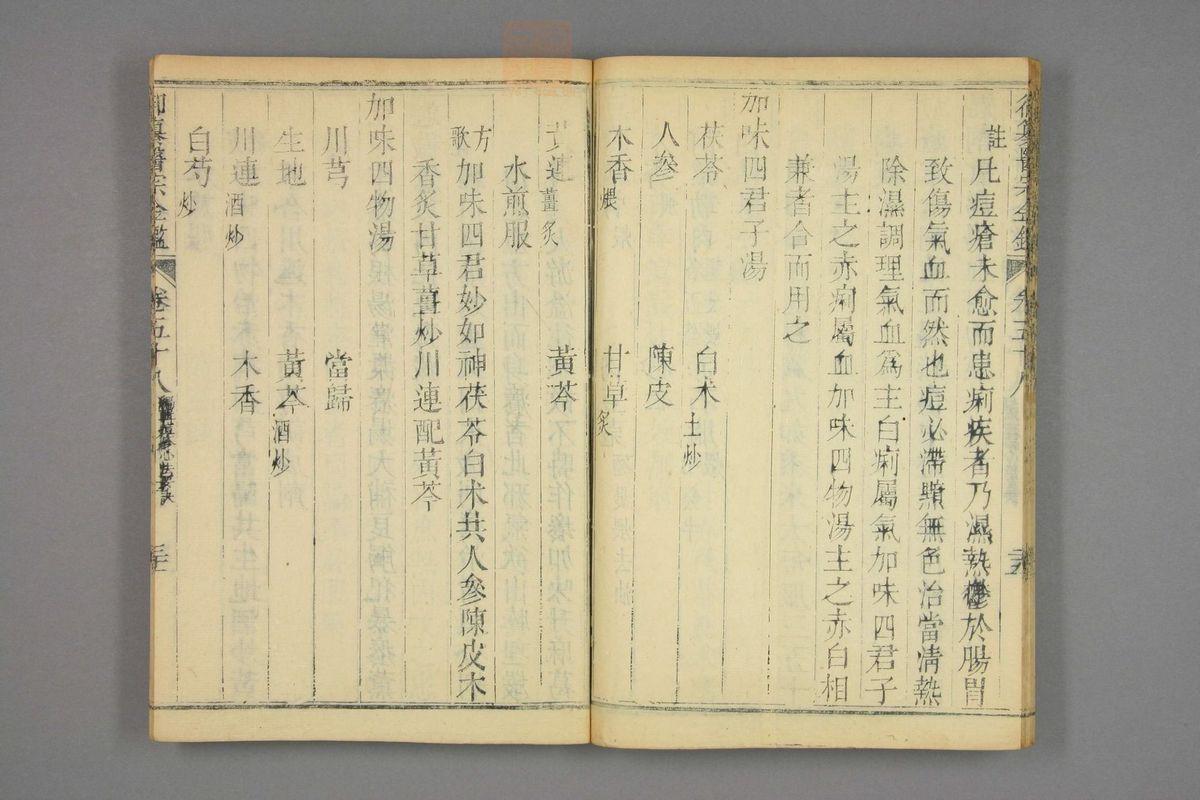 註凡痘瘡未愈而患痢疾者乃濕熱鬱於腸胃
致傷氣血而然也痘必滯顆無色治當清熱
除濕調理氣血爲主白痢屬氣加味四君子
湯主之赤痢屬血加味四物湯主之赤白相
兼者合而用之
加味四君子湯
茯苓 白朮土炒
人參 陳皮
木香煨 甘草炙
黃連薑炙 黃芩
水煎服
方歌 加味四君妙如神茯苓白朮共人參陳皮木
香炙甘草薑炒川連配黃芩
加味四物湯
川芎 當歸
生地 黃芩酒炒
川連酒炒 木香
白芍炒
御纂醫宗金鑑 卷五十八